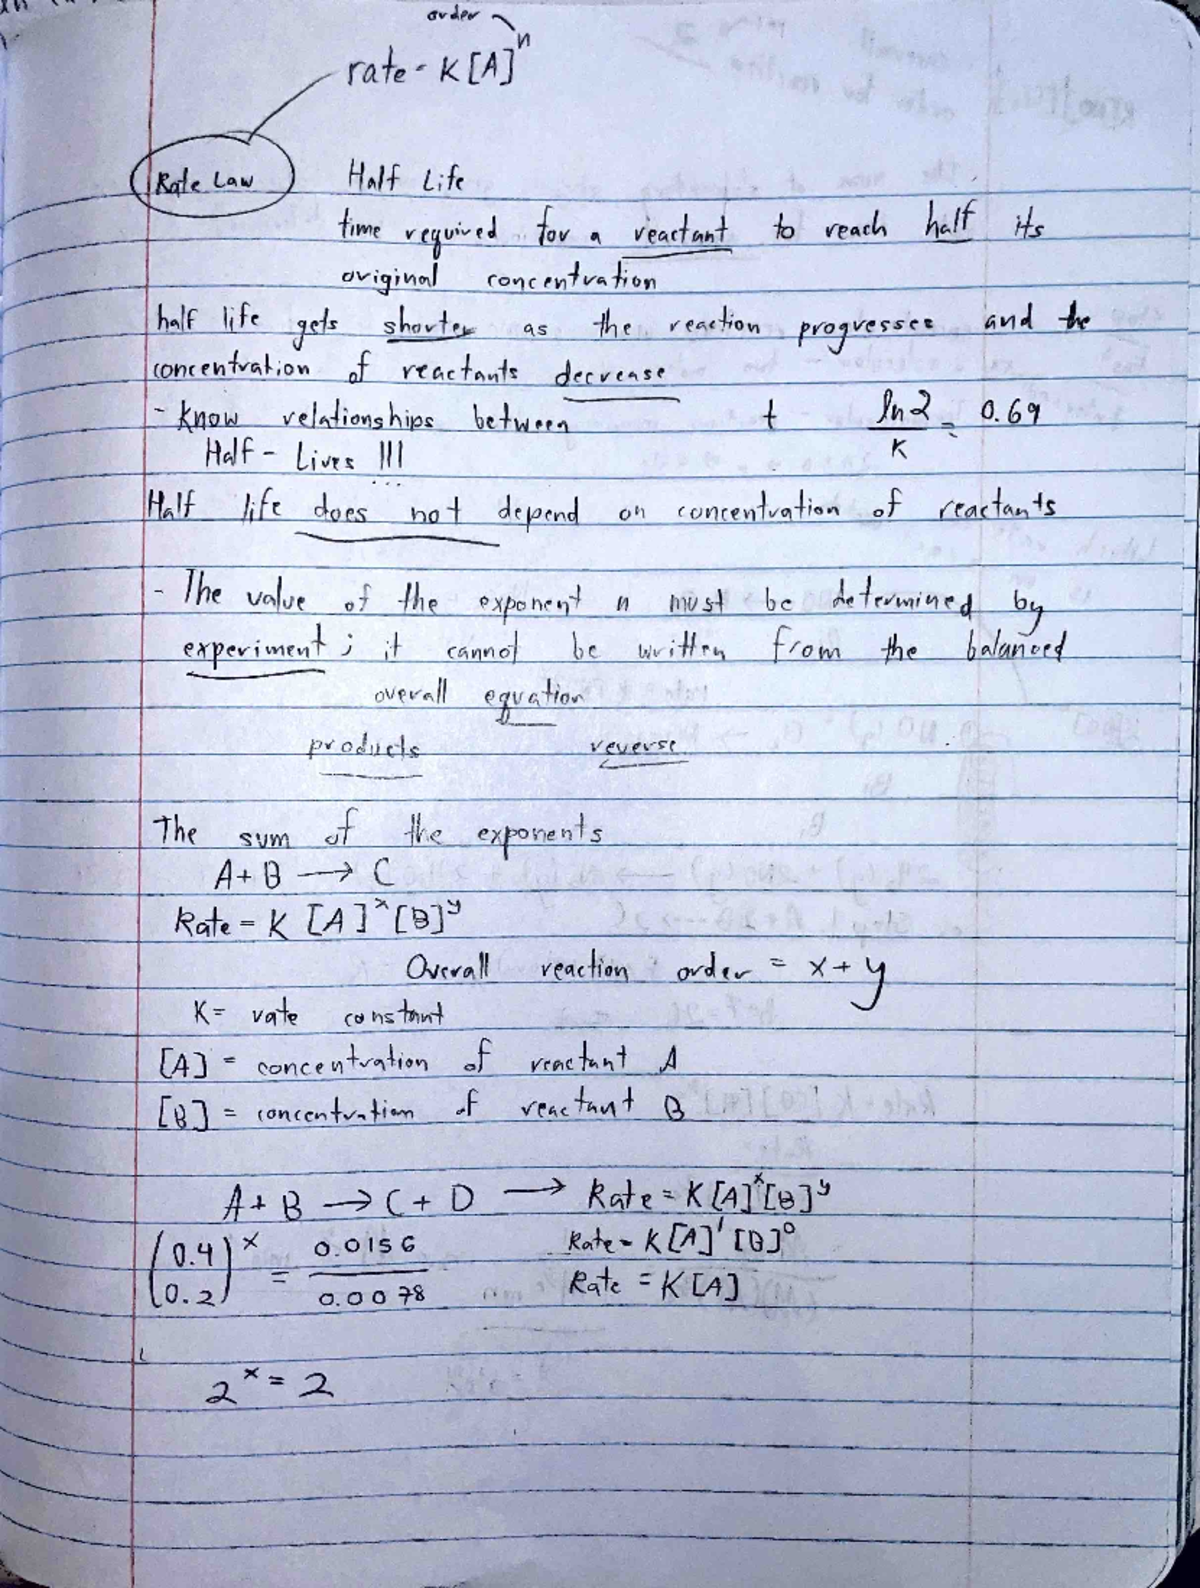 order
rate = K[A]^n
Rate Law
Half Life
time required for a reactant to reach half its
original concentration
half life gets shorter as the reaction progresses and the
concentration of reactants decrease
- Know relationships between t ln2/K = 0.69
Half - Lives !!!
Half life does not depend on concentration of reactants
- The value of the exponent n must be determined by
experiment; it cannot be written from the balanced
overall equation
products reverse
The sum of the exponents
A+B → C
Rate = K [A]^x [B]^y
Overall reaction order = x+y
K= rate constant
[A] = concentration of reactant A
[B] = concentration of reactant B
A+B → C+D → Rate = K[A]^x[B]^y
(0.4/0.2)^x = 0.0156/0.0078
Rate = K[A]^1 [B]^0
Rate = K[A]
2^x = 2